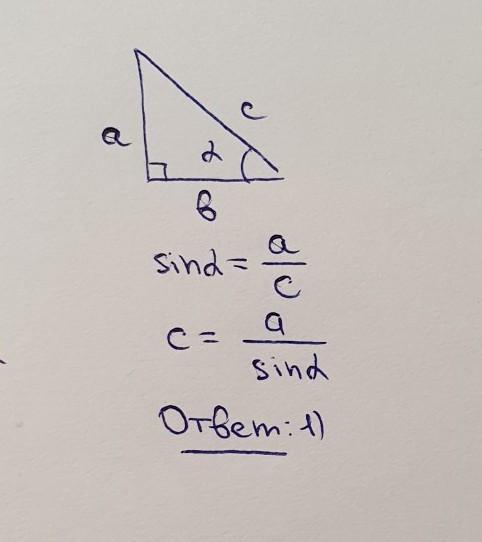 a
c
α
b
sinα = a/c
c = a/sinα
Ответ: 1)